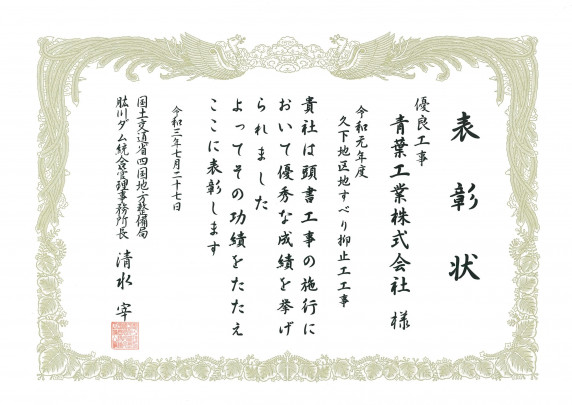 表彰状
優良工事
青葉工業株式会社 様
令和元年度
久下地区地すべり抑止工工事
貴社は頭書工事の施行に
おいて優秀な成績を挙げ
られました
よってその功績をたたえ
ここに表彰します
令和三年七月二十七日
国土交通省四国地方整備局
肱川ダム統合管理事務所長 清水 宰